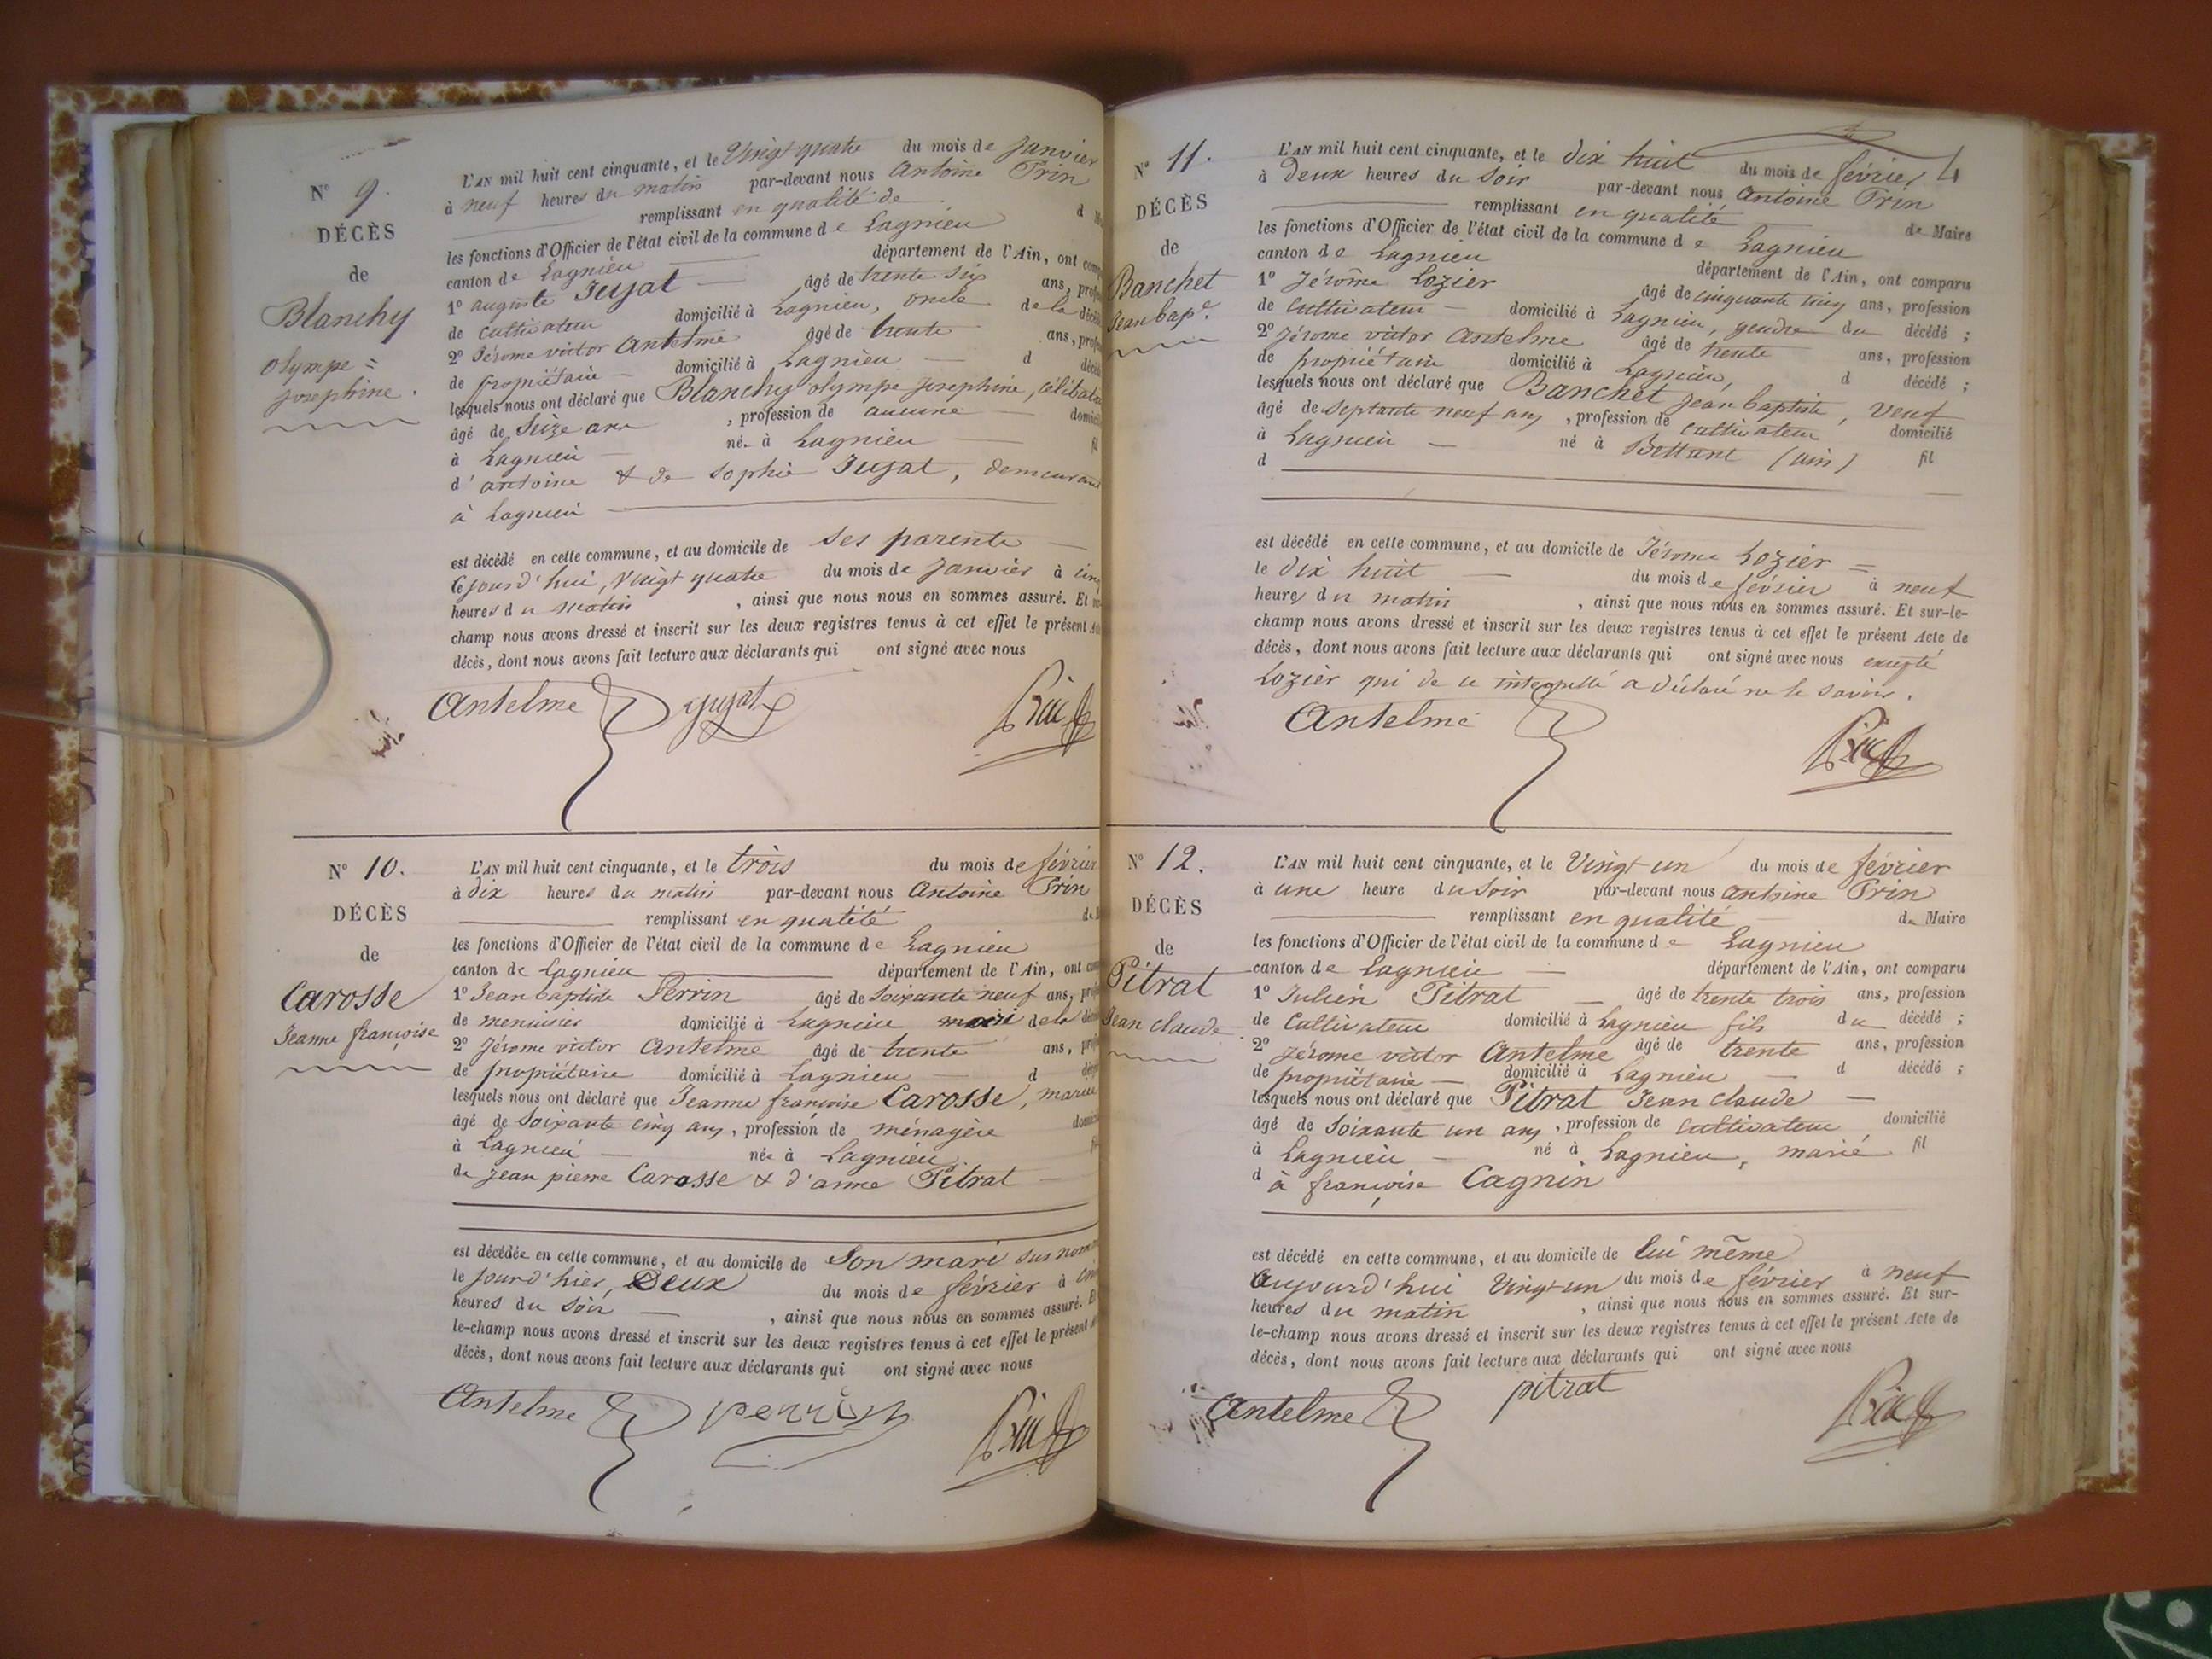 N° 9.
DÉCÈS
de
Blanchy
olympe =
josephine.
L'AN mil huit cent cinquante, et le Vingt quatre du mois de Janvier
à neuf heures du matin par-devant nous Antoine Prin
remplissant en qualité de d
les fonctions d'Officier de l'état civil de la commune de Lagnieu
canton de Lagnieu département de l'Ain, ont
1° auguste Jujat âgé de trente six ans,
de cultivateur domicilié à Lagnieu, oncle de la
2° Jérome victor Anthelme âgé de trente ans,
de propriétaire domicilié à Lagnieu d
lesquels nous ont déclaré que Blanchy olympe josephine,
âgé de Seize ans, profession de aucune
à Lagnieu née à Lagnieu
d'antoine & de sophie Jujat, demeurant
à Lagnieu
est décédé en cette commune, et au domicile de ses parents
Cejourd'hui, Vingt quatre du mois de Janvier à
heures du matin, ainsi que nous nous en sommes assuré. Et
champ nous avons dressé et inscrit sur les deux registres tenus à cet effet le présent
décès, dont nous avons fait lecture aux déclarants qui ont signé avec nous
Antelme Prin
N° 10.
DÉCÈS
de
Carosse
Jeanne françoise
L'AN mil huit cent cinquante, et le trois du mois de février
à dix heures du matin par-devant nous Antoine Prin
remplissant en qualité
les fonctions d'Officier de l'état civil de la commune de Lagnieu
canton de Lagnieu département de l'Ain, ont
1° Jean baptiste Perrin âgé de soixante neuf ans,
de menuisier domicilié à Lagnieu mari de la
2° Jérome victor Antelme âgé de trente ans,
de propriétaire domicilié à Lagnieu d
lesquels nous ont déclaré que Jeanne françoise Carosse, mariée
âgé de Soixante cinq ans, profession de ménagère
à Lagnieu née à Lagnieu
de jean pierre Carosse & d'anne Pitrat
est décédée en cette commune, et au domicile de Son mari
le jourd'hier, Deux du mois de février à
heures du soir, ainsi que nous nous en sommes assuré.
le-champ nous avons dressé et inscrit sur les deux registres tenus à cet effet le présent
décès, dont nous avons fait lecture aux déclarants qui ont signé avec nous
Antelme perrin Prin
4
N° 11.
DÉCÈS
de
Banchet
Jean bap.e
L'AN mil huit cent cinquante, et le dix huit du mois de février
à Deux heures du Soir par-devant nous Antoine Prin
remplissant en qualité de Maire
les fonctions d'Officier de l'état civil de la commune de Lagnieu
canton de Lagnieu département de l'Ain, ont comparu
1° Jérôme Lozier âgé de cinquante cinq ans, profession
de Cultivateur domicilié à Lagnieu, gendre du décédé ;
2° Jérome victor Anthelme âgé de trente ans, profession
de propriétaire domicilié à Lagnieu, d décédé ;
lesquels nous ont déclaré que Banchet jean baptiste, veuf
âgé de septante neuf ans, profession de cultivateur domicilié
à Lagnieu né à Bettant (ain) fil
d
est décédé en cette commune, et au domicile de Jérome Lozier =
le dix huit du mois de février à neuf
heures du matin, ainsi que nous nous en sommes assuré. Et sur-le-
champ nous avons dressé et inscrit sur les deux registres tenus à cet effet le présent Acte de
décès, dont nous avons fait lecture aux déclarants qui ont signé avec nous excepté
Lozier qui de ce interpellé a déclaré ne le savoir.
Antelme Prin
N° 12.
DÉCÈS
de
Pitrat
Jean claude
L'AN mil huit cent cinquante, et le Vingt-un du mois de février
à une heure du soir par-devant nous antoine Prin
remplissant en qualité de Maire
les fonctions d'Officier de l'état civil de la commune de Lagnieu
canton de Lagnieu département de l'Ain, ont comparu
1° Julien Pitrat âgé de trente trois ans, profession
de Cultivateur domicilié à Lagnieu fils du décédé ;
2° Jérome victor Antelme âgé de trente ans, profession
de propriétaire domicilié à Lagnieu d décédé ;
lesquels nous ont déclaré que Pitrat Jean claude
âgé de Soixante un ans, profession de cultivateur domicilié
à Lagnieu né à Lagnieu, marié fil
d à françoise Cagnin
est décédé en cette commune, et au domicile de lui même
Aujourd'hui Vingt-un du mois de février à neuf
heures du matin, ainsi que nous nous en sommes assuré. Et sur-
le-champ nous avons dressé et inscrit sur les deux registres tenus à cet effet le présent Acte de
décès, dont nous avons fait lecture aux déclarants qui ont signé avec nous
Antelme pitrat Prin